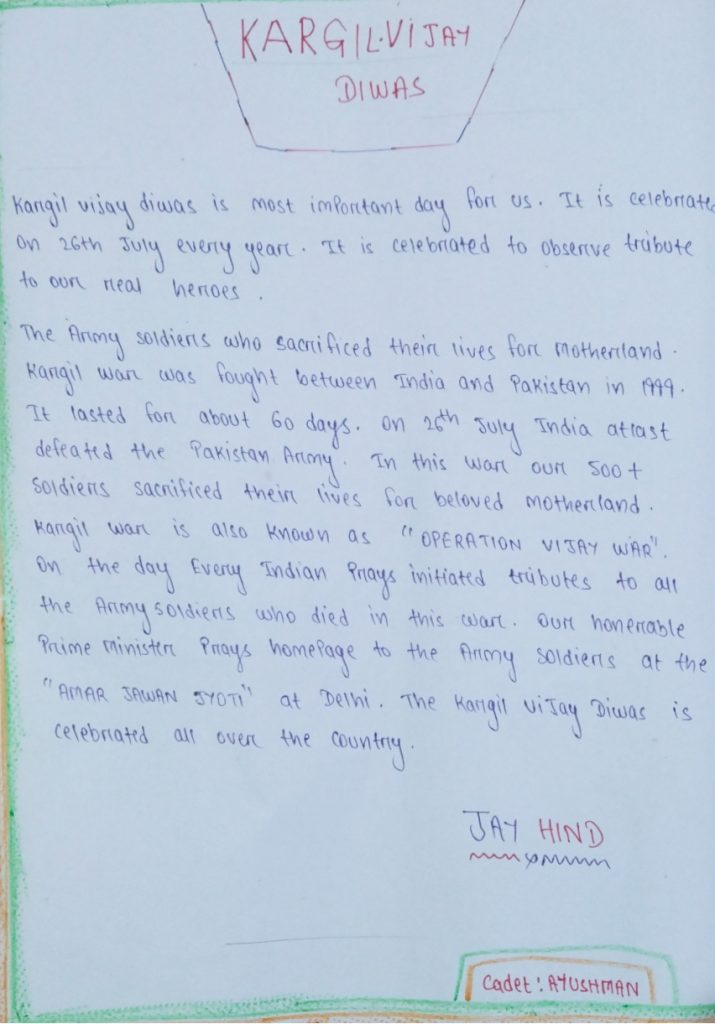 KARGIL.VIJAY
DIWAS
Kargil vijay diwas is most important day for us. It is celebrated
On 26th July every year. It is celebrated to observe tribute
to our real heroes.
The Army soldiers who sacrificed their lives for Motherland.
Kargil war was fought between India and Pakistan in 1999.
It lasted for about 60 days. On 26th July India atlast
defeated the Pakistan Army. In this war our 500+
Soldiers sacrificed their lives for beloved motherland.
Kargil war is also known as "OPERATION VIJAY WAR".
On the day Every Indian Prays initiated tributes to all
the Army soldiers who died in this war. Our honerable
Prime Minister Prays homepage to the Army soldiers at the
"AMAR JAWAN JYOTI" at Delhi. The Kargil viJay Diwas is
celebrated all over the Country.
JAY HIND
Cadet: AYUSHMAN